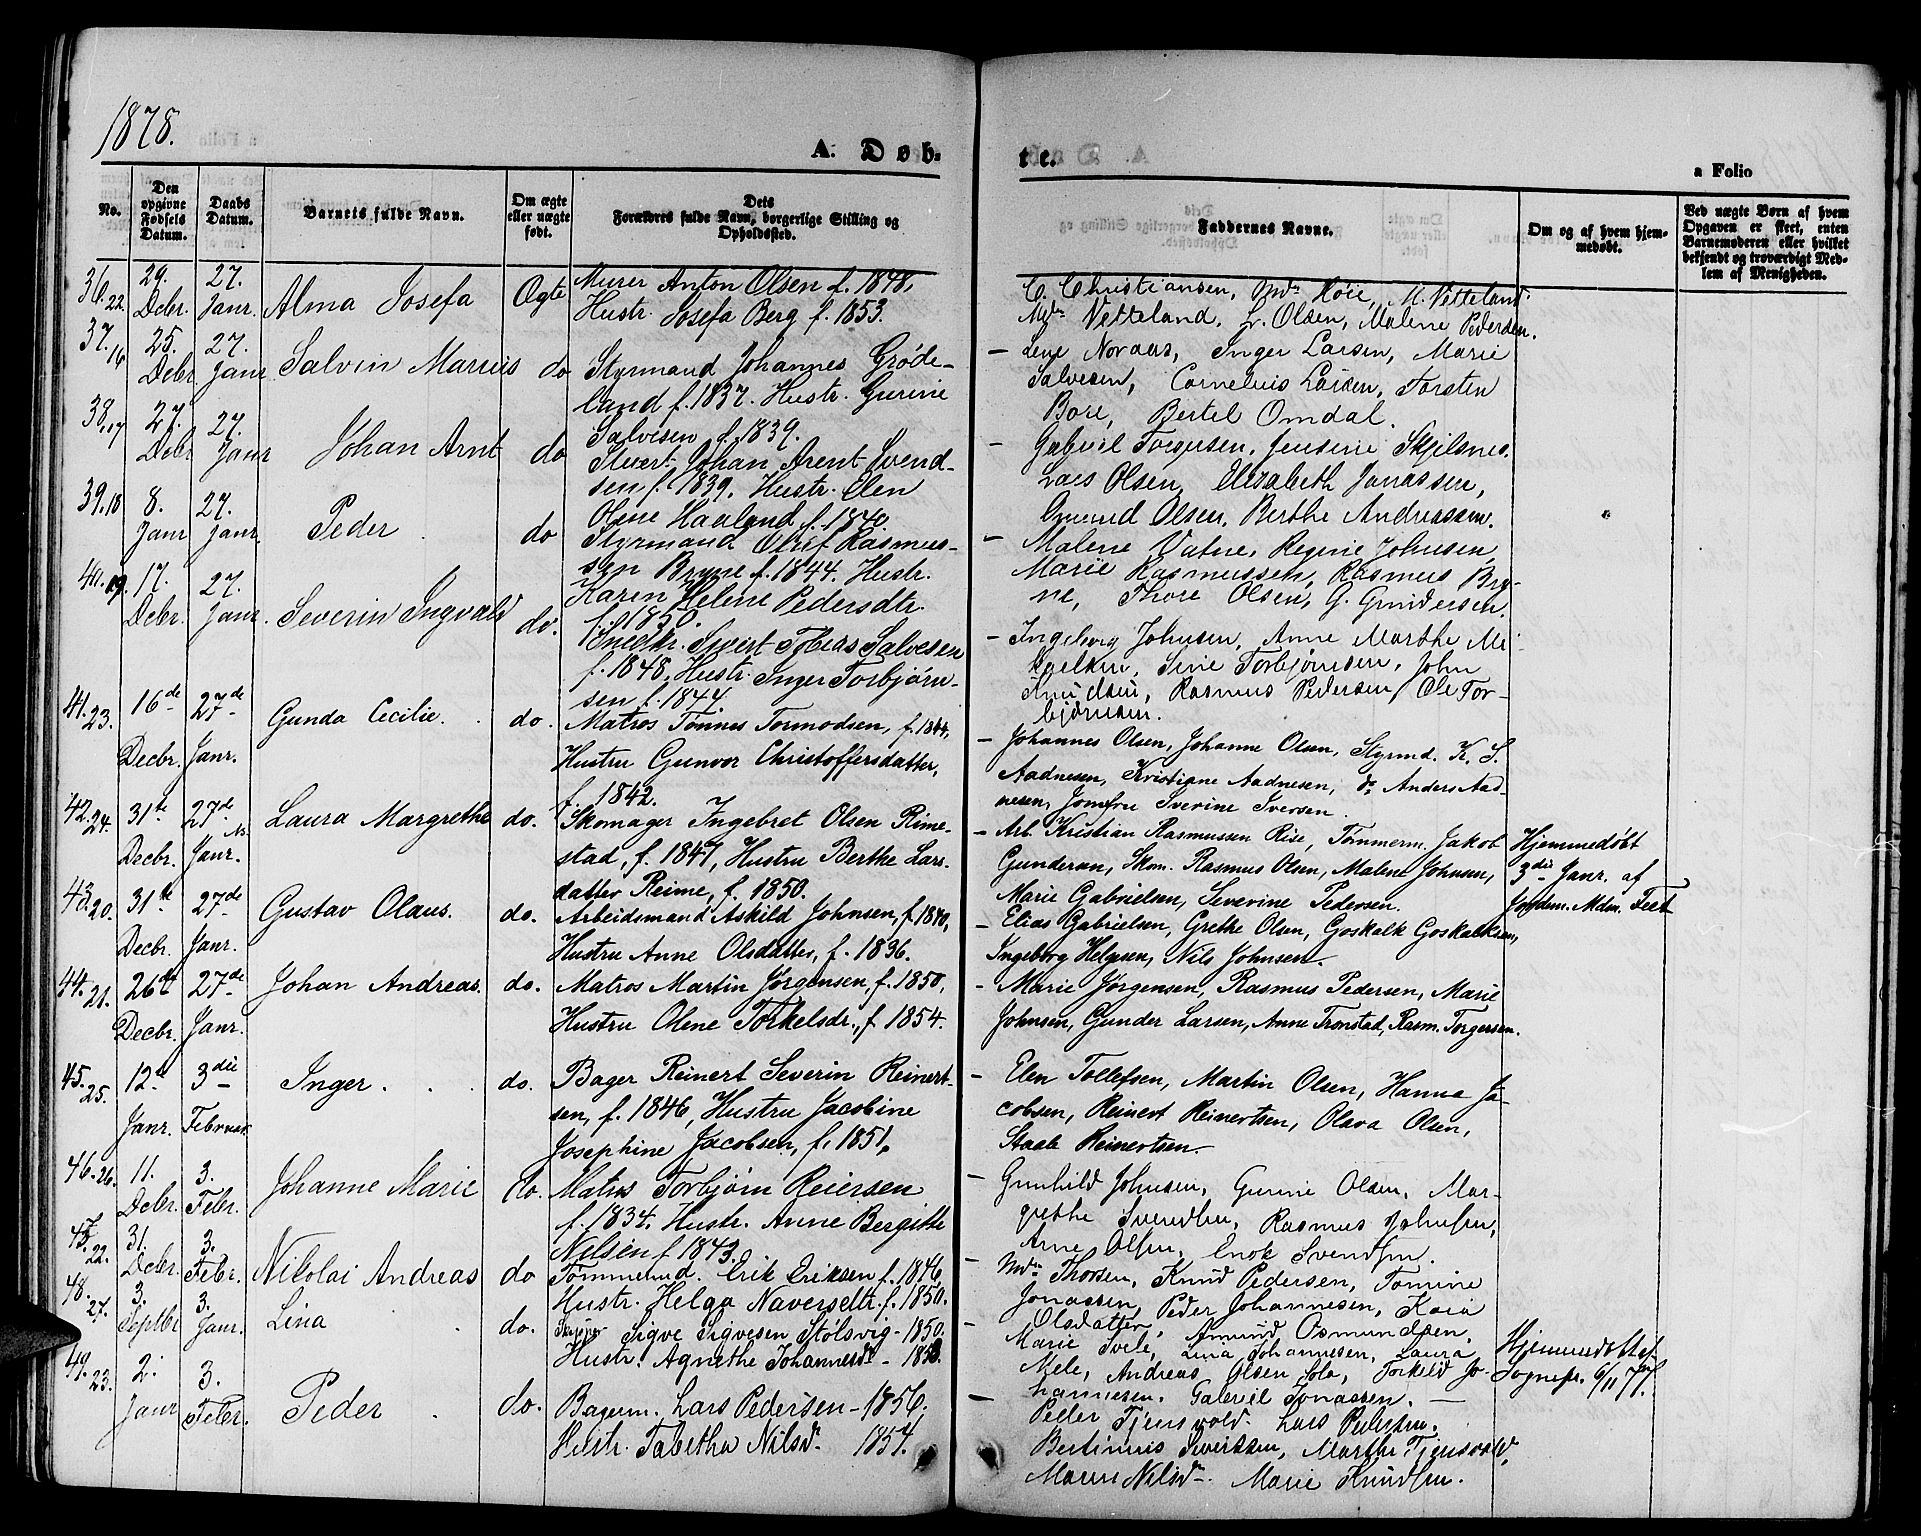 1878.
A. Døb-
te.
a Folio
No.
Den opgivne Fødsels Datum.
Daabs Datum.
Barnets fulde Navn.
Om ægte eller uægte født.
Dets Forældres fulde Navn, borgerlige Stilling og Opholdssted.
Faddernes Navne.
Om og af hvem hjemmedøbt.
Ved uægte Børn af hvem Opgaven er skeet, enten Barnemoderen eller hvilket bekjendt og troværdigt Medlem af Menigheden.
36. 22. 29. Decbr. 27. Janr. Alma Josefa Ægte
Murer Anton Olsen f. 1848,
Hustr. Josefa Berg f. 1853.
C. Christiansen, Md. Høie, M. Vetteland.
Md. Vetteland, L. Olsen, Malene Pedersen.
37. 16 25. Decbr 27. Janr Salvin Marius do
Styrmand Johannes Grøde-
land f. 1837. Hustr. Gurine
Salvesen f. 1839.
Lene Noraas, Inger Larsen, Marie
Salvesen, Cornelius Larsen, Torsten
Bore, Bertel Omdal.
38. 17 27. Decbr 27. Janr Johan Arnt do
Stuert Johan Arent Svend-
sen f. 1839. Hustr. Elen
Oline Haaland f. 1840.
Gabriel Torgersen, Jensine Skjilsnes.
Lars Olsen, Elizabeth Jonassen,
Omund Olsen, Berthe Andreassen.
39. 18 8. Janr 27. Janr. Peder do
Styrmand Oluf Rasmus-
sen Bryne f. 1844. Hustr.
Karen Helene Pedersdtr.
f. 1850.
Malene Vatne, Regine Johnsen
Marie Rasmussen, Rasmus Bry-
ne, Thore Olsen, G. Gundersen.
40. 19. 17. Decbr. 27. Janr. Severin Ingvald do.
Snedkr. Sivert Tobias Salvesen
f. 1848, Hustr. Inger Torbjørn-
sen f. 1844.
Ingeborg Johnsen, Anne Marthe Mi-
kaelsen, Sine Torbjørnsen, John
Knudsen, Rasmus Pedersen, Ole Tor-
bjørnsen.
41. 23. 16de Decbr. 27de Janr. Gunda Cecilie. do.
Matros Tønnes Tormodsen, f. 1844,
Hustru Gunvor Christoffersdatter,
f. 1842.
Johannes Olsen, Johanne Olsen, Styrmd. K. S.
Aadnesen, Kristiane Aadnesen, do Anders Aad-
nesen, Jomfru Sverine Iversen.
42. 24. 31te Decbr. 27de Janr. Laura Margrethe do.
Skomager Ingebret Olsen Rime-
stad, f. 1847, Hustru Berthe Lars-
datter Reime, f. 1850.
Arb. Kristian Rasmussen Rise, Tømmerm. Jakob
Gunderson, Skom. Rasmus Olsen, Malene Johnsen,
Marie Gabrielsen, Severine Pedersen.
Hjemmedøbt
3die Janr. af
Jordem. Mdm. Feet
43. 20. 31te Decbr. 27de Janr. Gustav Olaus. do.
Arbeidsmand Askild Johnsen, f. 1840,
Hustru Anne Olsdatter, f. 1836.
Elias Gabrielsen, Grethe Olsen, Goskalk Goskalksen,
Ingeborg Helgesen, Nils Johnsen.
44. 21. 26de Decbr. 27de Janr. Johan Andreas. do.
Matros Martin Jørgensen, f. 1850,
Hustru Olene Torkelsdr., f. 1854.
Marie Jørgensen, Rasmus Pedersen, Marie
Johnsen, Gunder Larsen, Anne Tronstad, Rasm. Torgersen.
45. 25. 12te Janr. 3die Februar. Inger. do.
Bager Reinert Severin Reinert-
sen, f. 1846, Hustru Jacobine
Josephine Jacobsen, f. 1851.
Elen Tollefsen, Martin Olsen, Hanna Ja-
cobsen, Reinert Reinertsen, Olava Olsen,
Staale Reinertsen.
46. 26. 11. Decbr. 3. Febr. Johanne Marie do.
Matros Torbjørn Reiersen
f. 1834. Hustr. Anne Bergitte
Nilsen f. 1843.
Gunhild Johnsen, Gurine Olsen, Mar-
grethe Svendsen, Rasmus Johnsen,
Arne Olsen, Enok Svendsen.
47. 22. 31. Decbr. 3. Febr. Nikolai Andreas do
Tømmermd. Erik Eriksen f. 1846,
Hustr. Helga Naversdtr. f. 1850.
Md. Thorsen, Knud Pedersen, Tomine
Jonassen, Peder Johannesen, Kaia
Olsdatter, Amund Osmundsen.
48. 27. 3. Septbr 3. Janr. Lina do.
Skipper Sigve Sigvesen Stølsvig - 1850.
Hustr. Agnethe Johannesdtr - 1853.
Marie Svele, Lina Johannesen, Laura
Mele, Andreas Olsen Sola, Torkild Jo-
hannesen. Gabriel Jonassen.
Hjemmedøbt af
Sognepr. 6/11 77.
49. 23. 2. Janr 3. Febr. Peder do.
Bagerm. Lars Pedersen - 1856.
Hustr. Tabitha Nilsd. 1857.
Peder Tjensvold. Lars Pedersen.
Bertinius Sivertsen, Marthe Tjensvold,
Maren Nilsdr. Marie Knudsen.